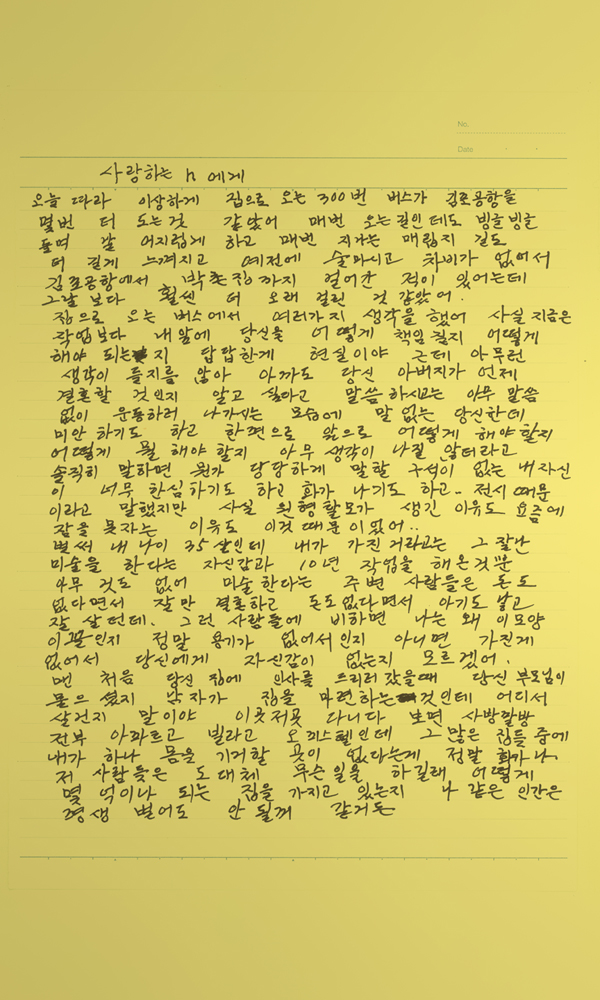 No.
Date
사랑하는 n 에게
오늘 따라 이상하게 집으로 오는 300번 버스가 김포공항을
몇번 더 도는것 같았어 매번 오는길인데도 빙글빙글
돌며 날 어지럽게 하고 매번 지나는 매립지 길도
더 길게 느껴지고 예전에 술마시고 차비가 없어서
김포공항에서 박촌집까지 걸어간 적이 있었는데
그날 보다 훨씬 더 오래 걸린 것 같았어.
집으로 오는 버스에서 여러가지 생각을 했어 사실 지금은
작업보다 내앞에 당신을 어떻게 책임질지 어떻게
해야 되는지 답답한게 현실이야 근데 아무런
생각이 들지를 않아 아까도 당신 아버지가 언제
결혼할 것인지 알고 싶다고 말씀하시고는 아무 말씀
없이 운동하러 나가시는 모습에 말 없는 당신한테
미안하기도 하고 한편으로 앞으로 어떻게 해야할지
어떻게 뭘 해야 할지 아무 생각이 나질 않더라고
솔직히 말하면 뭔가 당당하게 말할 구석이 없는 내자신
이 너무 한심하기도 하고 화가 나기도 하고- 전시 때문
이라고 말했지만 사실 원형탈모가 생긴 이유도 요즘에
잠을 못자는 이유도 이것 때문이었어..
벌써 내 나이 35살인데 내가 가진거라고는 그 잘난
미술을 한다는 자신감과 10년 작업을 해온것뿐
아무 것도 없어 미술한다는 주변 사람들은 돈도
없다면서 잘만 결혼하고 돈도없다면서 아기도 낳고
잘 살던데. 그런 사람들에 비하면 나는 왜 이모양
이꼴인지 정말 용기가 없어서인지 아니면 가진게
없어서 당신에게 자신감이 없는지 모르겠어.
맨 처음 당신 집에 인사를 드리러 갔을때 당신 부모님이
물으셨지 남자가 집을 마련하는것인데 어디서
살건지 말이야 이곳저곳 다니다 보면 사방팔방
전부 아파트고 빌라고 오피스텔인데 그많은 집들 중에
내가 하나 몸을 기거할 곳이 없다는게 정말 화가나.
저 사람들은 도대체 무슨일을 하길래 어떻게
몇 억이나 되는 집을 가지고 있는지 나 같은 인간은
평생 벌어도 안 될꺼 같거든